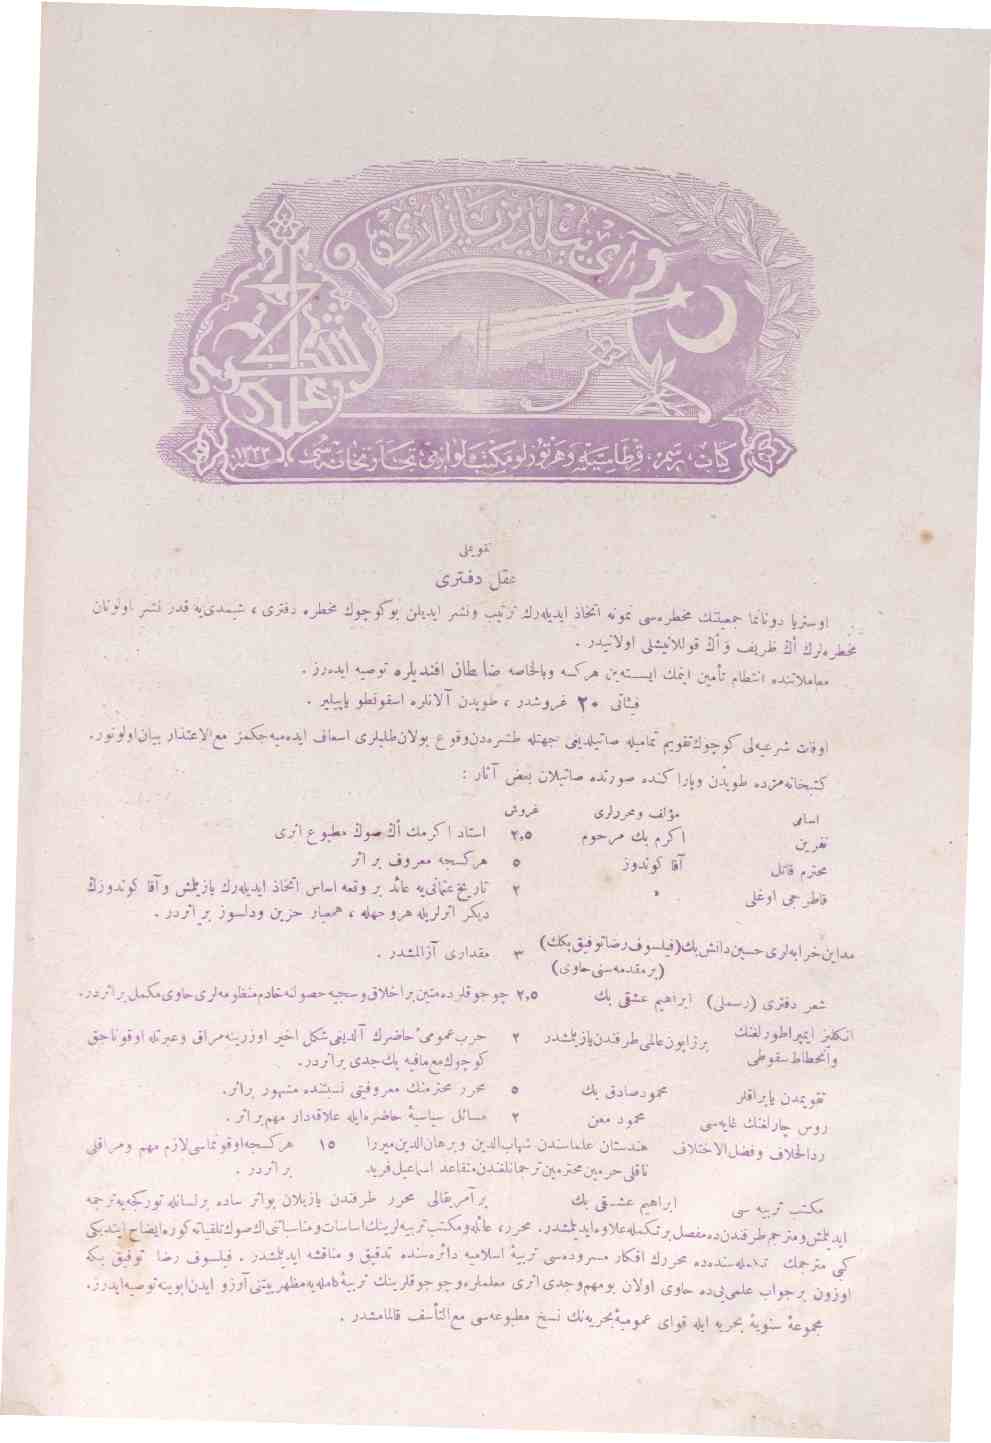 آی ییلدیز پازاری
علی شکری
کتاب، رسم، قرطاسیه و هر تورلو مکتب لوازمی تجارتخانه‌سی
۱۳۳۲
تقویملی
عقل دفتری
اوستریا دونانما جمعیتنك مخطره‌سی نمونه اتخاذ ایدیله‌رك ترتیب ونشر ایدیلن بوکوچوك مخطره دفتری ، شیمدی‌یه قدر نشر اولونان
مخطره‌لرك اڭ ظریف و اڭ قوللانیشلی اولانیدر .
معاملاتنده انتظام تأمین ایتمك ایسته‌ین هرکسه وبالخاصه ضابطان افندیلره توصیه ایده‌رز .
فیئاتی ۲۰ غروشدر ، طوپدن آلانلره اسقونطو یاپیلیر .
اوقات شرعیه‌لی کوچوك تقویم تمامیله صاتیلدیغی جهتله طشره‌دن وقوع بولان طلبلری اسعاف ایده‌میه‌جکمز مع‌الاعتذار بیان اولونور.
کتبخانه‌مزده طوپدن وپاراکنده صورتده صاتیلان بعض آثار :
اسامی مؤلف ومحررلری غروش
نفرین اکرم بك مرحوم ۲,۵ استاد اکرمك اڭ صوڭ مطبوع اثری
محترم قاتل آقا کوندوز ۵ هرکسجه معروف بر اثر
قاطرجی اوغلی » ۲ تاریخ عثمانی‌یه عائد بر وقعه اساس اتخاذ ایدیله‌رك یازیلمش و آقا کوندوزڭ
دیکر اثرلریله هروجهله ، همعیار حزین ودلسوز بر اثردر .
مداین خرابه‌لری حسین دانش بك (فیلسوف رضا توفیق بکك) ۳ مقداری آزالمشدر .
(بر مقدمه‌سنی حاوی)
شعر دفتری (رسملی) ابراهیم عشقی بك ۲,۵ چوجوقلرده متین بر اخلاق وسجیه حصولنه خادم منظومه‌لری حاوی مکمل بر اثردر.
انکلیز ایمپراطورلغنك برژاپون عالمی طرفندن یازیلمشدر ۲ حرب عمومیٔ حاضرك آلدیغی شکل اخیر اوزرینه مراق وعبرتله اوقوناجق
وانحطاط سقوطی کوچوك مع مافیه پك جدی بر اثردر.
تقویمدن یاپراقلر محمود صادق بك ۵ محرر محترمنك معروفیتی نسبتنده مشهور بر اثر.
روس چارلغنك غایه‌سی محمود معن ۲ مسائل سیاسیهٔ حاضره ایله علاقه‌دار مهم بر اثر .
ردالخلاف وفضل‌الاختلاف هندستان علماسندن شهاب‌الدین وبرهان‌الدین میرزا ۱۵ هرکسجه اوقونماسی لازم مهم ومراقلی
ناقلی حرمین محترمین ترجمانلغندن متقاعد اسماعیل فرید بر اثردر .
مکتب تربیه سی ابراهیم عشقی بك برآمریقالی محرر طرفندن یازیلان بواثر ساده بر لسانله تورکجه‌یه ترجمه
ایدیلمش ومترجم طرفندن ده مفصل بر تکمله علاوه ایدیلمشدر. محرر، عائله ومکتب تربیه‌لرینك اساسات ومناسباتنی اڭ صوك تلقیاته کوره ایضاح ایتدیکی
کبی مترجمك تکمله‌سنده‌ده محررك افکار مسروده‌سی تربیهٔ اسلامیه دائره‌سنده تدقیق و مناقشه ایدیلمشدر . فیلسوف رضا توفیق بکه
اوزون بر جواب علمی‌یی‌ده حاوی اولان بو مهم وجدی اثری معلملره وچوجوقلرینك تربیهٔ کامله‌یه مظهریتنی آرزو ایدن ابوینه توصیه ایدرز.
مجموعهٔ سنویهٔ بحریه ایله قوای عمومیهٔ بحریه‌نك نسخ مطبوعه‌سی مع‌التأسف قالمامشدر .